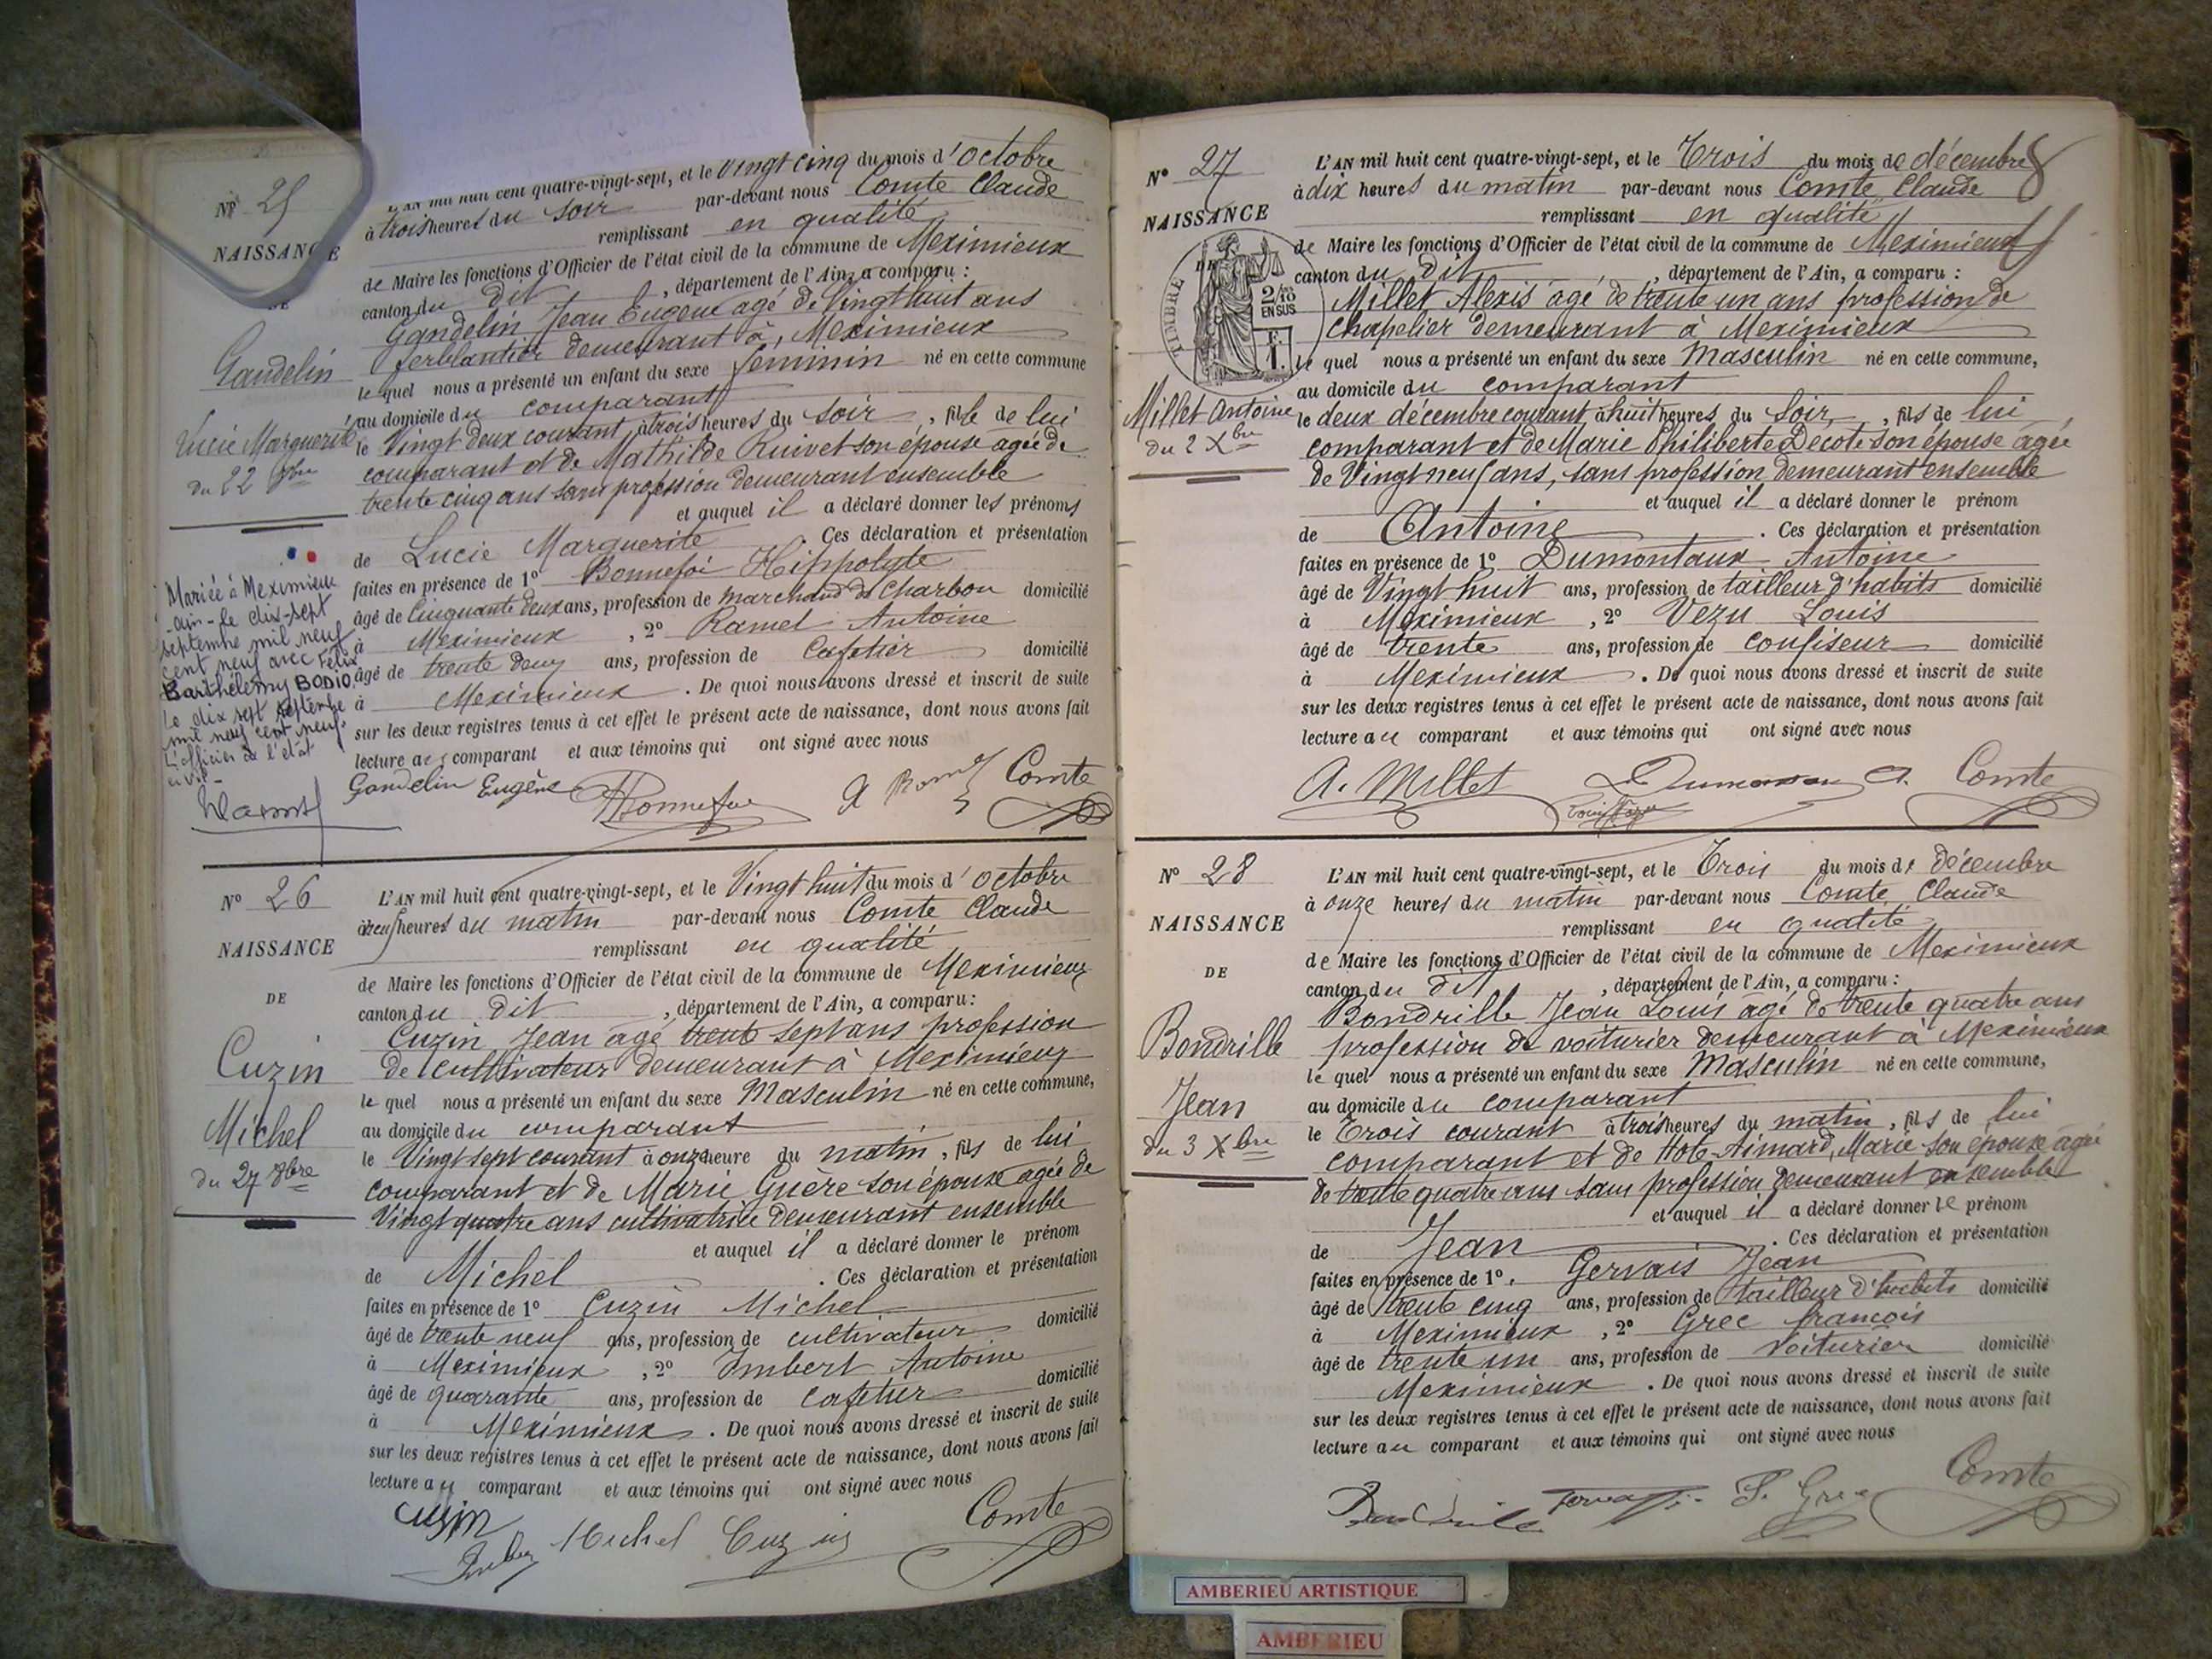 Nº 25
NAISSANCE
DE
Gandelin
Lucie Marguerite
du 22 8bre
Mariée à Meximieux
ain - le dix-sept
septembre mil neuf
cent neuf avec Félix
Barthélemy BODIO.
Le dix sept septembre
mil neuf cent neuf.
L'officier de l'état
civil -
L'AN mil huit cent quatre-vingt-sept, et le Vingt cinq du mois d'octobre
à trois heures du soir par-devant nous Comte Claude
remplissant en qualité
de Maire les fonctions d'Officier de l'état civil de la commune de Meximieux
canton du dit, département de l'Ain, a comparu :
Gandelin Jean Eugene agé de Vingt huit ans
ferblantier demeurant à, Meximieux
le quel nous a présenté un enfant du sexe feminin né en cette commune
au domicile du comparant
le Vingt deux courant à trois heures du soir, fille de lui
comparant et de Mathilde Ruivet son épouse agée de
trente cinq ans sans profession demeurant ensemble
et auquel il a déclaré donner les prénoms
de Lucie Marguerite. Ces déclaration et présentation
faites en présence de 1º Bonnefoi Hippolyte
âgé de Cinquante deux ans, profession de marchand de Charbon domicilié
à Meximieux, 2º Ramel Antoine
âgé de trente deux ans, profession de Cafetier domicilié
à Meximieux. De quoi nous avons dressé et inscrit de suite
sur les deux registres tenus à cet effet le présent acte de naissance, dont nous avons fait
lecture au comparant et aux témoins qui ont signé avec nous
Gandelin Eugène Comte
Nº 26
NAISSANCE
DE
Cuzin
Michel
du 27 8bre
L'AN mil huit cent quatre-vingt-sept, et le Vingt huit du mois d'octobre
à neuf heures du matin par-devant nous Comte Claude
remplissant en qualité
de Maire les fonctions d'Officier de l'état civil de la commune de Meximieux
canton du dit, département de l'Ain, a comparu :
Cuzin Jean agé trente sept ans profession
de cultivateur demeurant à Meximieux
le quel nous a présenté un enfant du sexe Masculin né en cette commune,
au domicile du comparant
le Vingt sept courant à onze heure du matin, fils de lui
comparant et de Marie Guère son épouse agée de
Vingt quatre ans cultivatrice demeurant ensemble
et auquel il a déclaré donner le prénom
de Michel. Ces déclaration et présentation
faites en présence de 1º Cuzin Michel
âgé de trente neuf ans, profession de cultivateur domicilié
à Meximieux, 2º Imbert Antoine
âgé de quarante ans, profession de cafetier domicilié
à Meximieux. De quoi nous avons dressé et inscrit de suite
sur les deux registres tenus à cet effet le présent acte de naissance, dont nous avons fait
lecture au comparant et aux témoins qui ont signé avec nous
Cuzin Michel Cuzin Comte
Nº 27
NAISSANCE
DE
TIMBRE
2/10
EN SUS
F.
1.
Millet Antoine
du 2 Xbre
L'AN mil huit cent quatre-vingt-sept, et le Trois du mois de décembre
à dix heures du matin par-devant nous Comte Claude
remplissant en qualité
de Maire les fonctions d'Officier de l'état civil de la commune de Meximieux
canton du dit, département de l'Ain, a comparu :
Millet Alexis agé de trente un ans profession de
chapelier demeurant à Meximieux
le quel nous a présenté un enfant du sexe Masculin né en cette commune,
au domicile du comparant
le deux décembre courant à huit heures du Soir, fils de lui
comparant et de Marie Philiberte Decote son épouse agée
de Vingt neuf ans, sans profession demeurant ensemble
et auquel il a déclaré donner le prénom
de Antoine. Ces déclaration et présentation
faites en présence de 1º Dumontaux Antoine
âgé de Vingt huit ans, profession de tailleur d'habits domicilié
à Meximieux, 2º Vezu Louis
âgé de trente ans, profession de confiseur domicilié
à Meximieux. De quoi nous avons dressé et inscrit de suite
sur les deux registres tenus à cet effet le présent acte de naissance, dont nous avons fait
lecture au comparant et aux témoins qui ont signé avec nous
A. Millet Comte
Nº 28
NAISSANCE
DE
Bondrille
Jean
du 3 Xbre
L'AN mil huit cent quatre-vingt-sept, et le Trois du mois de décembre
à onze heures du matin par-devant nous Comte Claude
remplissant en qualité
de Maire les fonctions d'Officier de l'état civil de la commune de Meximieux
canton du dit, département de l'Ain, a comparu :
Bondrille Jean Louis agé de trente quatre ans
profession de voiturier demeurant à Meximieux
le quel nous a présenté un enfant du sexe Masculin né en cette commune,
au domicile du comparant
le Trois courant à trois heures du matin, fils de lui
comparant et de Hote-Aimard, Marie son épouse agée
de trente quatre ans sans profession demeurant ensemble
et auquel il a déclaré donner le prénom
de Jean. Ces déclaration et présentation
faites en présence de 1º. Gervais Jean
âgé de trente cinq ans, profession de tailleur d'habits domicilié
à Meximieux, 2º Grec françois
âgé de trente un ans, profession de Voiturier domicilié
Meximieux. De quoi nous avons dressé et inscrit de suite
sur les deux registres tenus à cet effet le présent acte de naissance, dont nous avons fait
lecture au comparant et aux témoins qui ont signé avec nous
Comte
AMBERIEU ARTISTIQUE
AMBERIEU